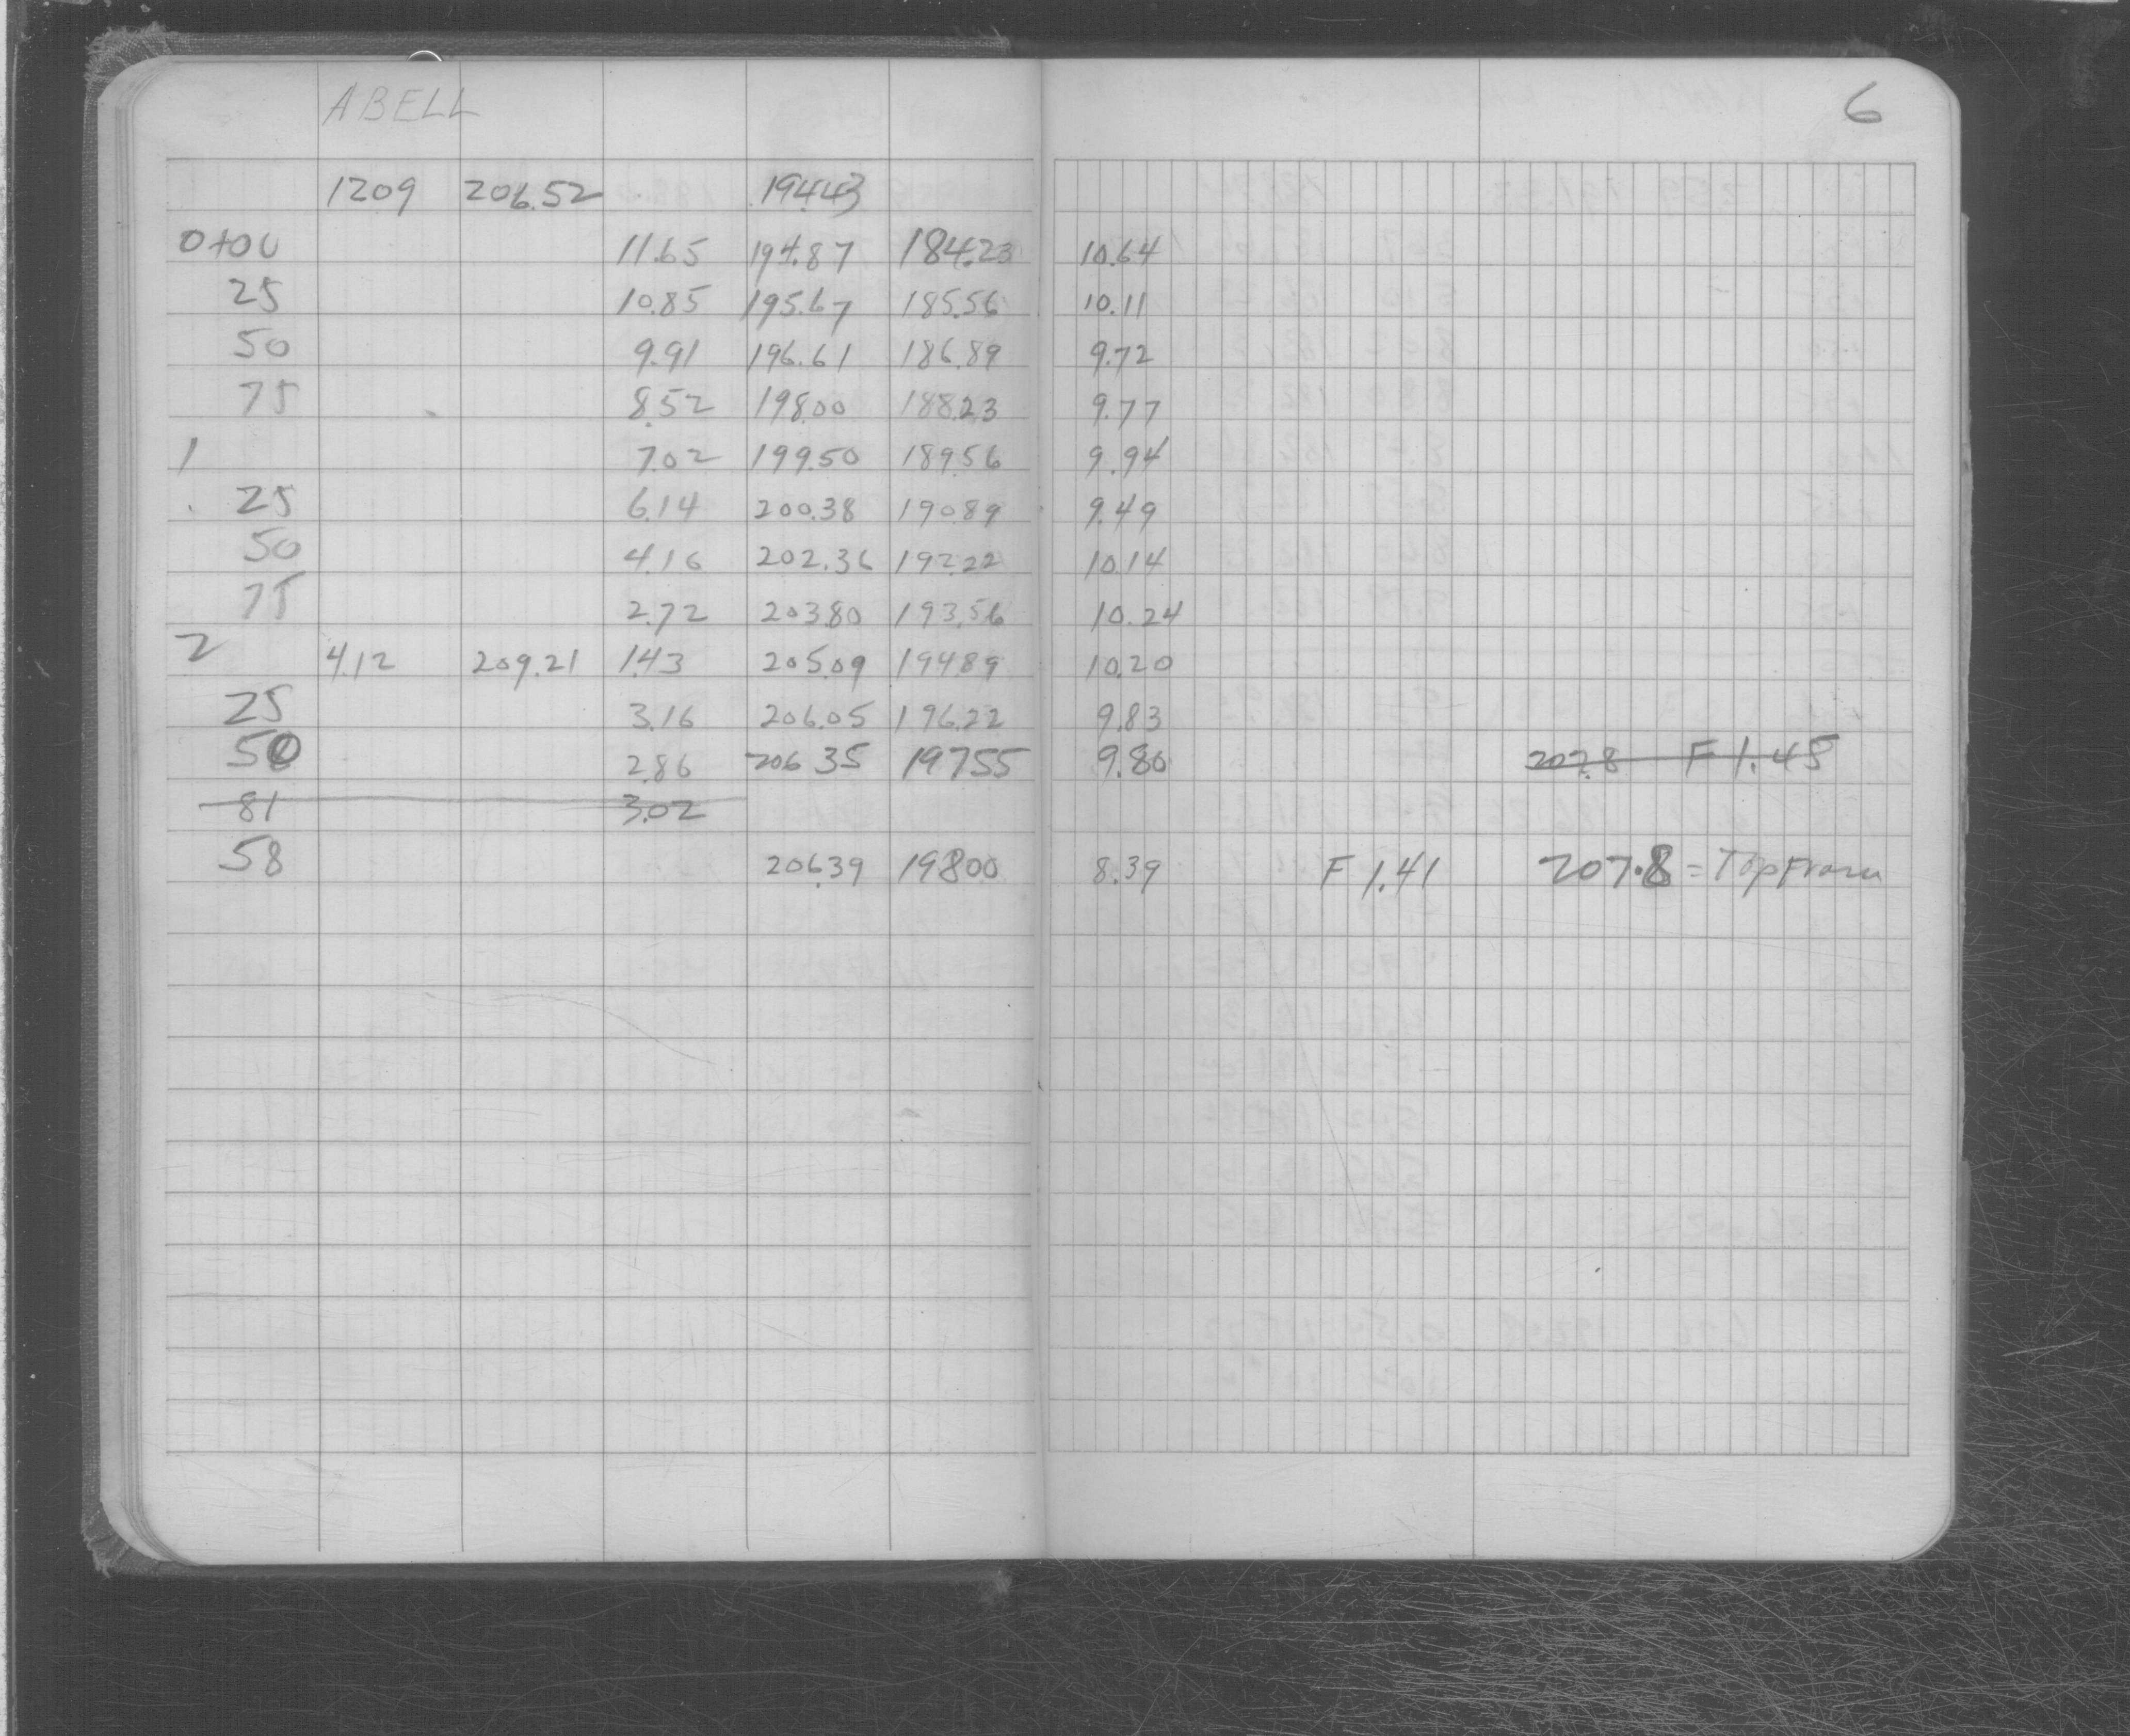 ABELL 6
1209 206.52 194.43
0+00 11.65 194.87 184.23 10.64
25 10.85 195.67 185.56 10.11
50 9.91 196.61 186.89 9.72
75 8.52 198.00 188.23 9.77
1 7.02 199.50 189.56 9.94
25 6.14 200.38 190.89 9.49
50 4.16 202.36 192.22 10.14
75 2.72 203.80 193.56 10.24
2 4.12 209.21 1.43 205.09 194.89 10.20
25 3.16 206.05 196.22 9.83
50 2.86 206 35 19755 9.80 207.8 F 1.45
81 3.02
58 206.39 19800 8.39 F 1.41 207.8 = Top Fram